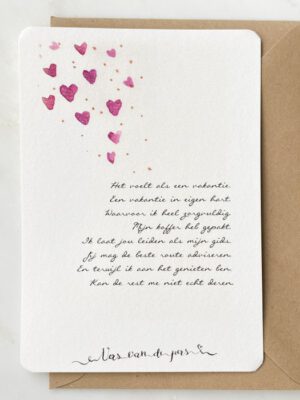 Het voelt als een vakantie.
Een vakantie in eigen hart.
Waarvoor ik heel zorgvuldig
Mijn koffer heb gepakt.
Ik laat jou leiden als mijn gids.
Jij mag de beste route adviseren.
En terwijl ik aan het genieten ben,
Kan de rest me niet echt deren.